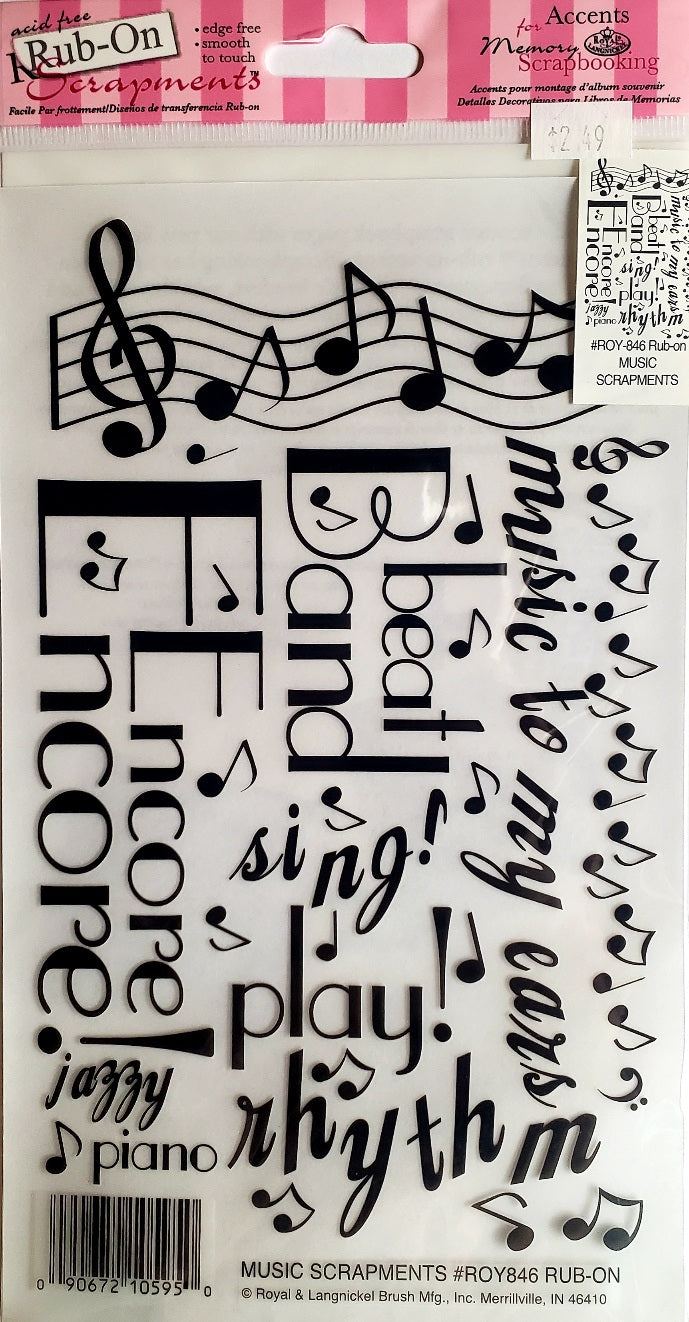 acid free
Rub-On
Scrapments™
• edge free
• smooth
to touch
Facile Par frottement/Diseños de transferencia Rub-on
for Accents
Memory
Scrapbooking
ROYAL
LANGNICKEL
Accents pour montage d'album souvenir
Detalles Decorativos para Libros de Memorias
$2.49
Encore!
Encore!
Band
beat!
music to my ears
sing!
play!
rhythm
jazzy
piano
#ROY-846 Rub-on
MUSIC
SCRAPMENTS
Encore!
Encore!
Band
beat!
music to my ears
sing!
play!
jazzy
rhythm
piano
0 90672 10595 0
MUSIC SCRAPMENTS #ROY846 RUB-ON
© Royal & Langnickel Brush Mfg., Inc. Merrillville, IN 46410